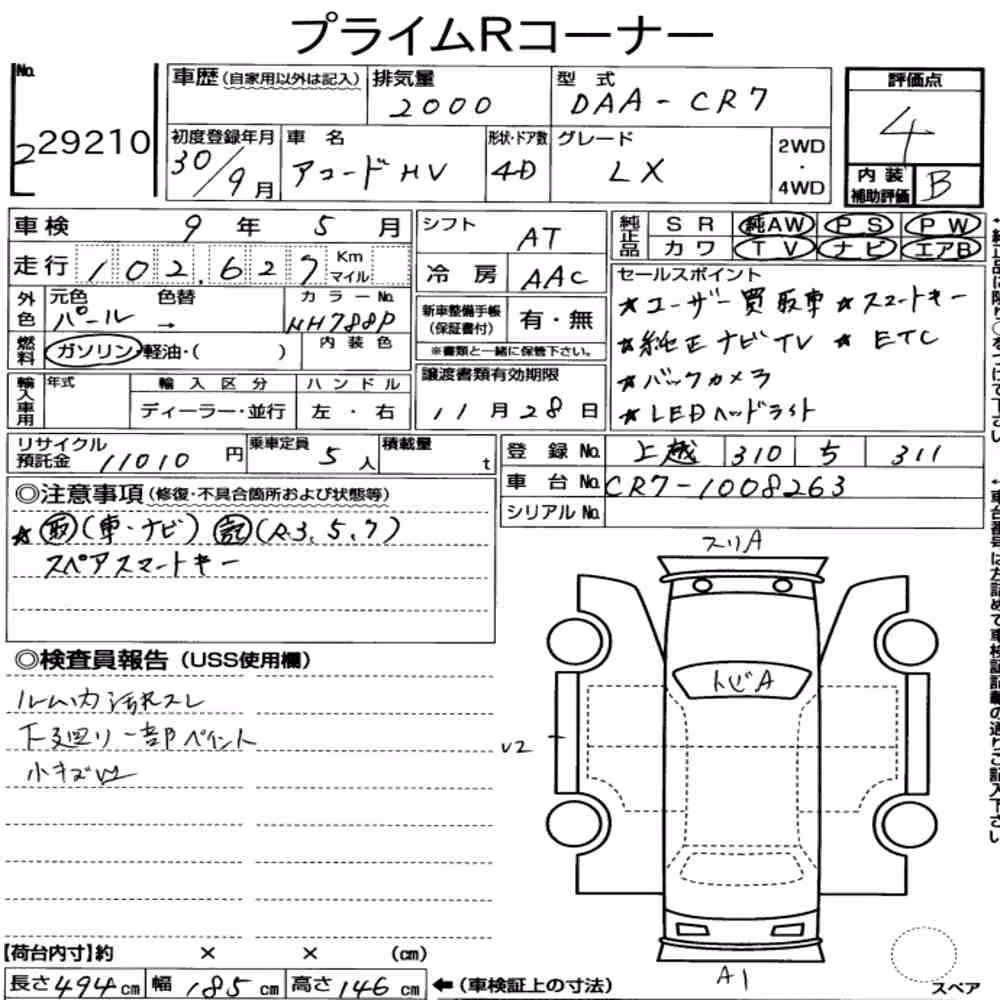 プライムRコーナー
No. 229210
車歴(自家用以外は記入)
排気量 2000
型式 DAA-CR7
評価点 4
初度登録年月 30/9月
車名 アコードHV
形状・ドア数 4D
グレード LX
2WD・4WD
内装補助評価 B
車検 9年 5月
シフト AT
純正品 SR 純AW PS PW
カワ TV ナビ エアB
走行 102,627 Km マイル
冷房 AAC
セールスポイント
★ユーザー買取車 ★スマートキー
★純正ナビTV ★ETC
★バックカメラ
★LEDヘッドライト
外色 元色 パール 色替 → カラーNo. NH788P
新車整備手帳(保証書付) 有・無
※書類と一緒に保管下さい。
燃料 ガソリン・軽油・( ) 内装色
輸入車用 年式 輸入区分 ディーラー・並行 ハンドル 左・右
譲渡書類有効期限 11月28日
リサイクル預託金 11010円
乗車定員 5人
積載量 t
登録No. 上越 310 ち 311
車台No. CR7-1008263
シリアルNo.
◎注意事項(修復・不具合箇所および状態等)
★取(車・ナビ) 記(R3、5、7)
スペアスマートキー
◎検査員報告(USS使用欄)
ルーム内汚れスレ
下廻り一部ペイント
小キズU2
スリA
トビA
U2
A1
スペア
【荷台内寸】約 × × (cm)
長さ494cm 幅185cm 高さ146cm ←(車検証上の寸法)